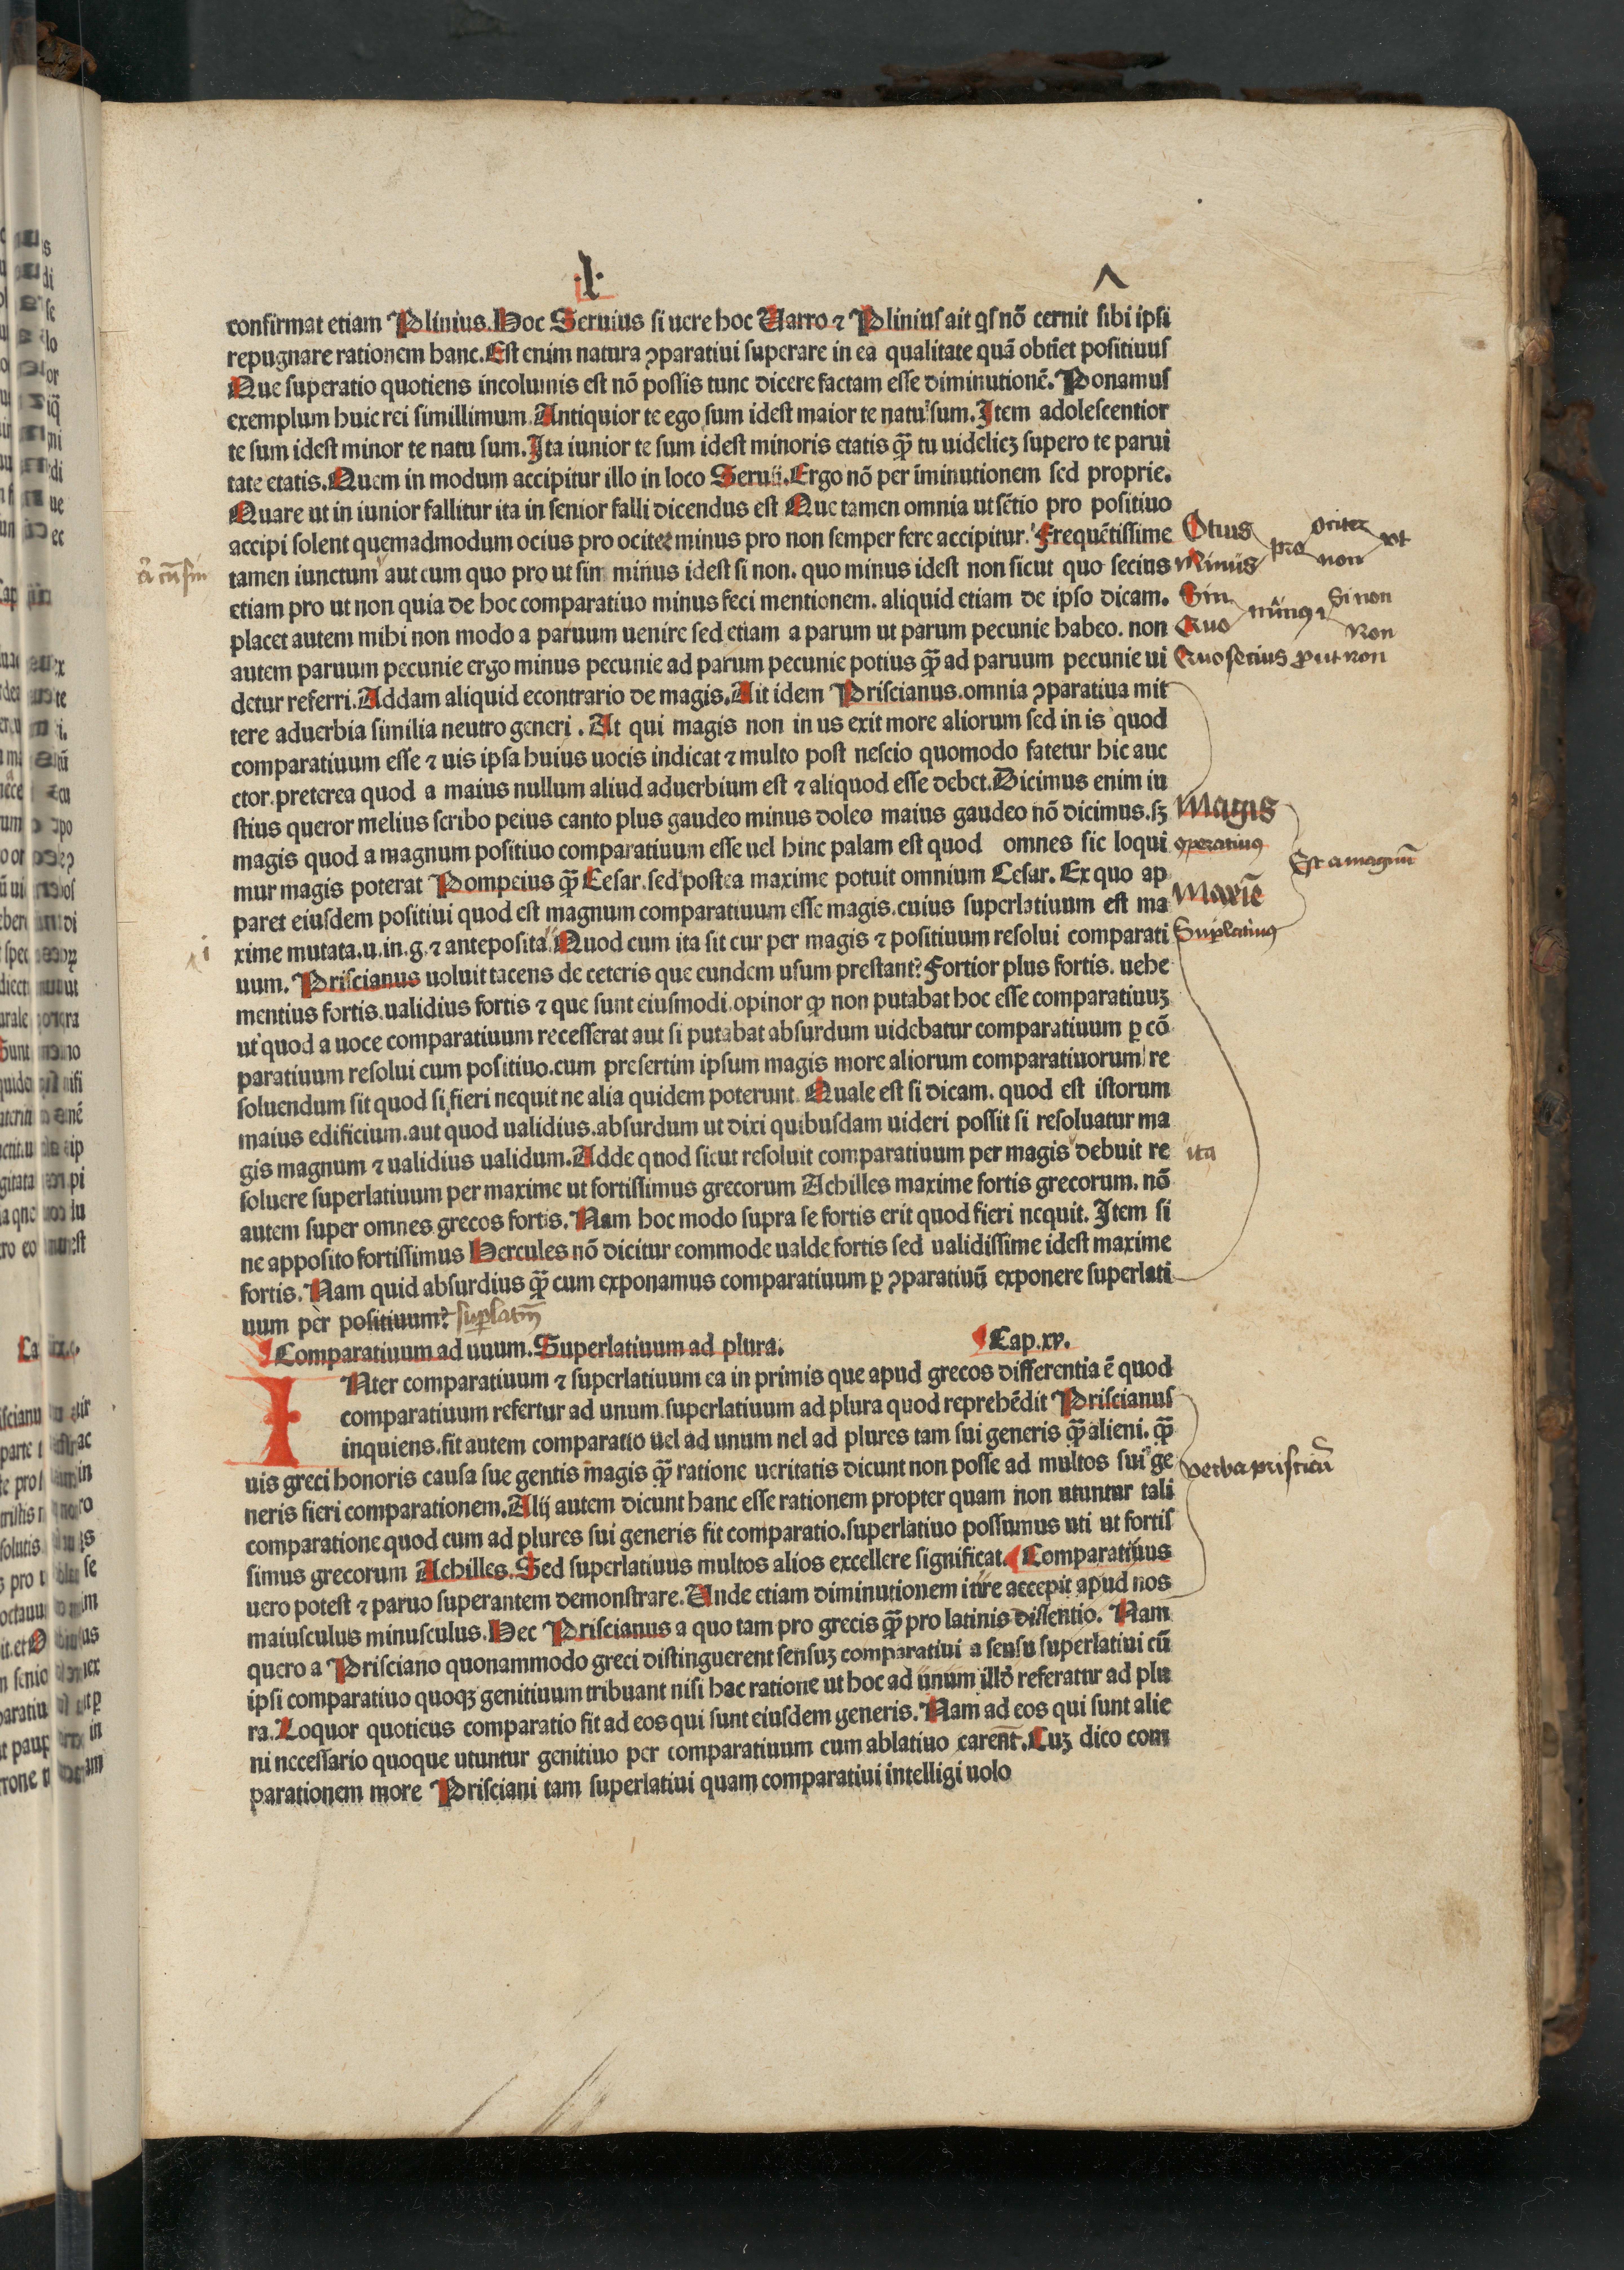 ·l·
confirmat etiam Plinius. Hoc Seruius si uere hoc Uarro ⁊ Plinius ait qs nõ cernit sibi ipsi
repugnare rationem hanc. Est enim natura ꝯparatiui superare in ea qualitate quã obtĩet positiuus
Que superatio quotiens incolumis est nõ possis tunc dicere factam esse diminutionẽ. Ponamus
exemplum huic rei simillimum. Antiquior te ego sum idest maior te natu sum. Item adolescentior
te sum idest minor te natu sum. Ita iunior te sum idest minoris etatis ꝙ̃ tu uidelicꝫ supero te parui
tate etatis. Quem in modum accipitur illo in loco Seruii. Ergo nõ per ĩminutionem sed proprie.
Quare ut in iunior fallitur ita in senior falli dicendus est Que tamen omnia ut sẽtio pro positiuo
accipi solent quemadmodum ocius pro ociter minus pro non semper fere accipitur. Frequẽtissime
tamen iunctum aut cum quo pro ut sin minus idest si non. quo minus idest non sicut quo secius
etiam pro ut non quia de hoc comparatiuo minus feci mentionem. aliquid etiam de ipso dicam.
placet autem mihi non modo a paruum uenire sed etiam a parum ut parum pecunie habeo. non
autem paruum pecunie ergo minus pecunie ad parum pecunie potius ꝙ̃ ad paruum pecunie ui
detur referri. Addam aliquid econtrario de magis. Ait idem Priscianus. omnia ꝯparatiua mit
tere aduerbia similia neutro generi. At qui magis non in us exit more aliorum sed in is quod
comparatiuum esse ⁊ uis ipsa huius uocis indicat ⁊ multo post nescio quomodo fatetur hic auc
ctor. preterea quod a maius nullum aliud aduerbium est ⁊ aliquod esse debet. Dicimus enim iu
stius queror melius scribo peius canto plus gaudeo minus doleo maius gaudeo nõ dicimus. sꝫ
magis quod a magnum positiuo comparatiuum esse uel hinc palam est quod omnes sic loqui
mur magis poterat Pompeius ꝙ̃ Cesar. sed postea maxime potuit omnium Cesar. Ex quo ap
paret eiusdem positiui quod est magnum comparatiuum esse magis. cuius superlatiuum est ma
xime mutata. u. in. g. ⁊ anteposita Quod cum ita sit cur per magis ⁊ positiuum resolui comparati
uum. Priscianus uoluit tacens de ceteris que eundem usum prestant? Fortior plus fortis. uehe
mentius fortis. ualidius fortis ⁊ que sunt eiusmodi. opinor ꝙ non putabat hoc esse comparatiuuꝫ
ut quod a uoce comparatiuum recesserat aut si putabat absurdum uidebatur comparatiuum ꝑ cõ
paratiuum resolui cum positiuo. cum presertim ipsum magis more aliorum comparatiuorum re
soluendum sit quod si fieri nequit ne alia quidem poterunt. Quale est si dicam. quod est istorum
maius edificium. aut quod ualidius. absurdum ut dixi quibusdam uideri possit si resoluatur ma
gis magnum ⁊ ualidius ualidum. Adde quod sicut resoluit comparatiuum per magis debuit re
soluere superlatiuum per maxime ut fortissimus grecorum Achilles maxime fortis grecorum. nõ
autem super omnes grecos fortis. Nam hoc modo supra se fortis erit quod fieri nequit. Item si
ne apposito fortissimus Hercules nõ dicitur commode ualde fortis sed ualidissime idest maxime
fortis. Nam quid absurdius ꝙ̃ cum exponamus comparatiuum ꝑ ꝯparatiuũ exponere superlati
uum per positiuum?
Comparatiuum ad unum. Superlatiuum ad plura. Cap. xv.
INter comparatiuum ⁊ superlatiuum ea in primis que apud grecos differentia ẽ quod
comparatiuum refertur ad unum. superlatiuum ad plura quod reprehẽdit Priscianus
inquiens. fit autem comparatio uel ad unum nel ad plures tam sui generis ꝙ̃ alieni. ꝙ̃
uis greci honoris causa sue gentis magis ꝙ̃ ratione ueritatis dicunt non posse ad multos sui ge
neris fieri comparationem. Alij autem dicunt hanc esse rationem propter quam non utuntur tali
comparatione quod cum ad plures sui generis fit comparatio. superlatiuo possumus uti ut fortis
simus grecorum Achilles. Sed superlatiuus multos alios excellere significat. Comparatiuus
uero potest ⁊ paruo superantem demonstrare. Unde etiam diminutionem iure accepit apud nos
maiusculus minusculus. Hec Priscianus a quo tam pro grecis ꝙ̃ pro latinis dissentio. Nam
quero a Prisciano quonammodo greci distinguerent sensuꝫ comparatiui a sensu superlatiui cũ
ipsi comparatiuo quoqꝫ genitiuum tribuant nisi hac ratione ut hoc ad unum illõ referatur ad plu
ra. Loquor quoticus comparatio fit ad eos qui sunt eiusdem generis. Nam ad eos qui sunt alie
ni necessario quoque utuntur genitiuo per comparatiuum cum ablatiuo carent. Cuꝫ dico com
parationem more Prisciani tam superlatiui quam comparatiui intelligi uolo
Otius pro ociter ut
Minus non
Sin Si non
Quo Non
Quo secius ꝓ ut non
Magis
Est a magnũ
Maxiẽ
ita
verba